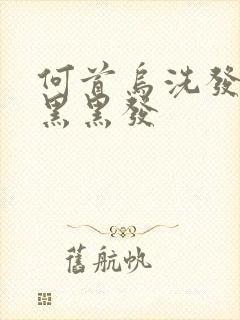 何首烏洗發
黑黑發
舊航帆